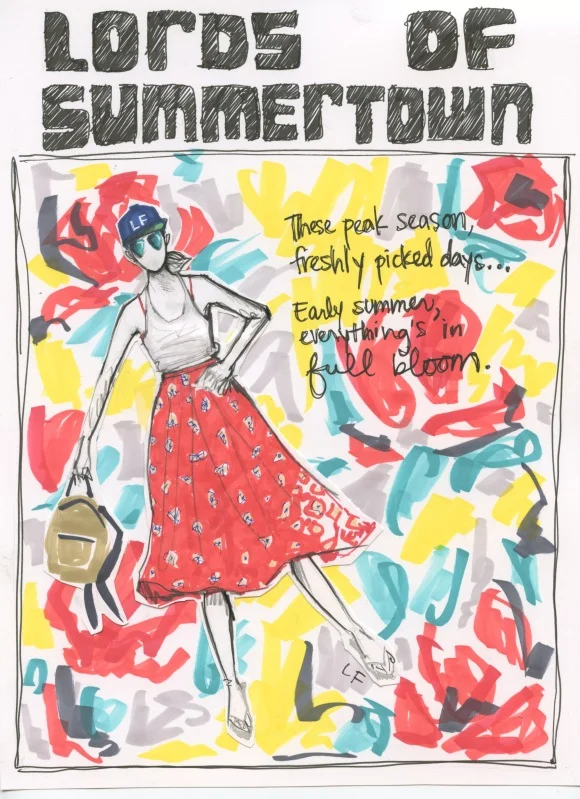 LORDS OF
SUMMERTOWN
LF
These peak season,
freshly picked days...
Early summer,
everything's in
full bloom.
LF